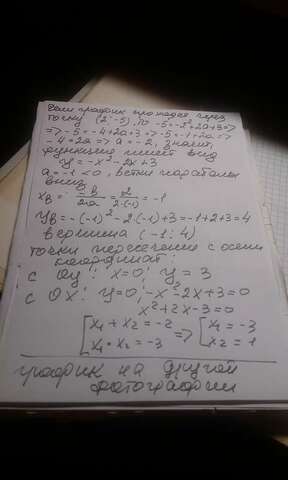 Если график проходит через
точку (2; -5), то -5=-2²+2a+3=>
=> -5=-4+2a+3 => -5=-1+2a =>
-4=2a => a=-2, значит,
функция имеет вид
y=-x²-2x+3
a=-1<0, ветки параболы
вниз
xв=-в/2a=2/2·(-1)=-1
yв=-(-1)²-2·(-1)+3=-1+2+3=4
вершина (-1; 4)
точки пересечения с осями
координат:
с Oy: x=0; y=3
с Ox: y=0; -x²-2x+3=0
x²+2x-3=0
[x₁+x₂=-2 => [x₁=-3
x₁·x₂=-3 x₂=1
график на другой
фотографии